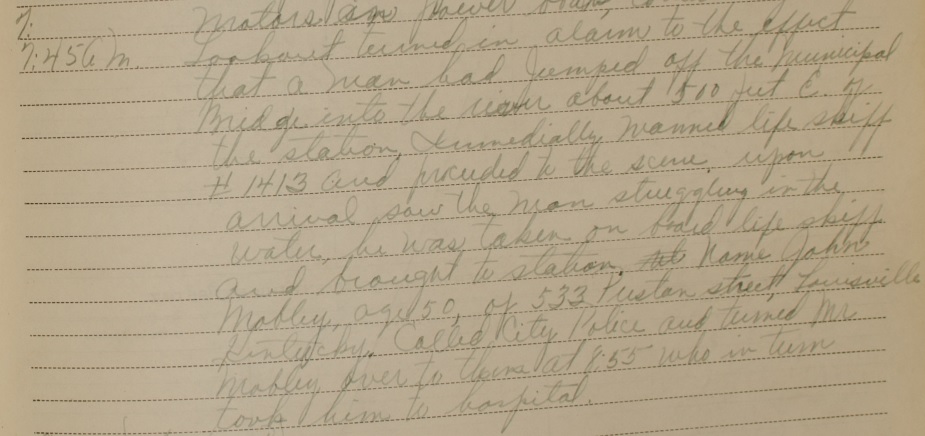 7.
Motors and power boat,
7:45 A.M. Lookout turned in alarm to the effect
that a man had jumped off the Municipal
Bridge into the river about 500 feet E. of
the station, Immedially manned life skiff
# 1413 and proceeded to the scene, upon
arrival saw the man struggling in the
water, he was taken on board life skiff
and brought to station. Name John
Mobley, age 50, of 533 Preston street, Louisville
Kentucky. Called City Police and turned Mr
Mobley over to them at 8:55 who in turn
took him to hospital.